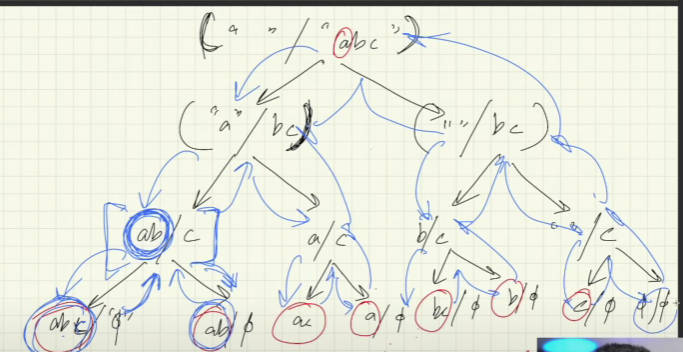 (" " / "abc")
("a" / bc) ("" / bc)
ab / c a / c b / c "" / c
abc / "ϕ" ab / ϕ ac / ϕ a / ϕ bc / ϕ b / ϕ c / ϕ ϕ / ϕ